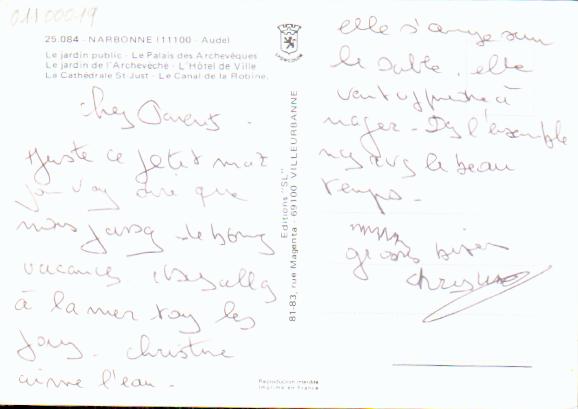 011 00019
25.084 - NARBONNE (11100 - Aude)
Le jardin public - Le Palais des Archevêques
Le jardin de l'Archevêché - L'Hôtel de Ville
La Cathédrale St-Just - Le Canal de la Robine.
chers Parents.
juste ce petit mot
pour vous dire que
nous passons de bonnes
vacances
à la mer tous les
jours. christine
aime l'eau.
elle s'amuse sur
le sable, elle
veut apprendre à
nager. l'ensemble
nous avons le beau
temps.
gros bises
Editions "SL"
81-83, rue Magenta - 69100 VILLEURBANNE
Reproduction interdite
Imprimé en France